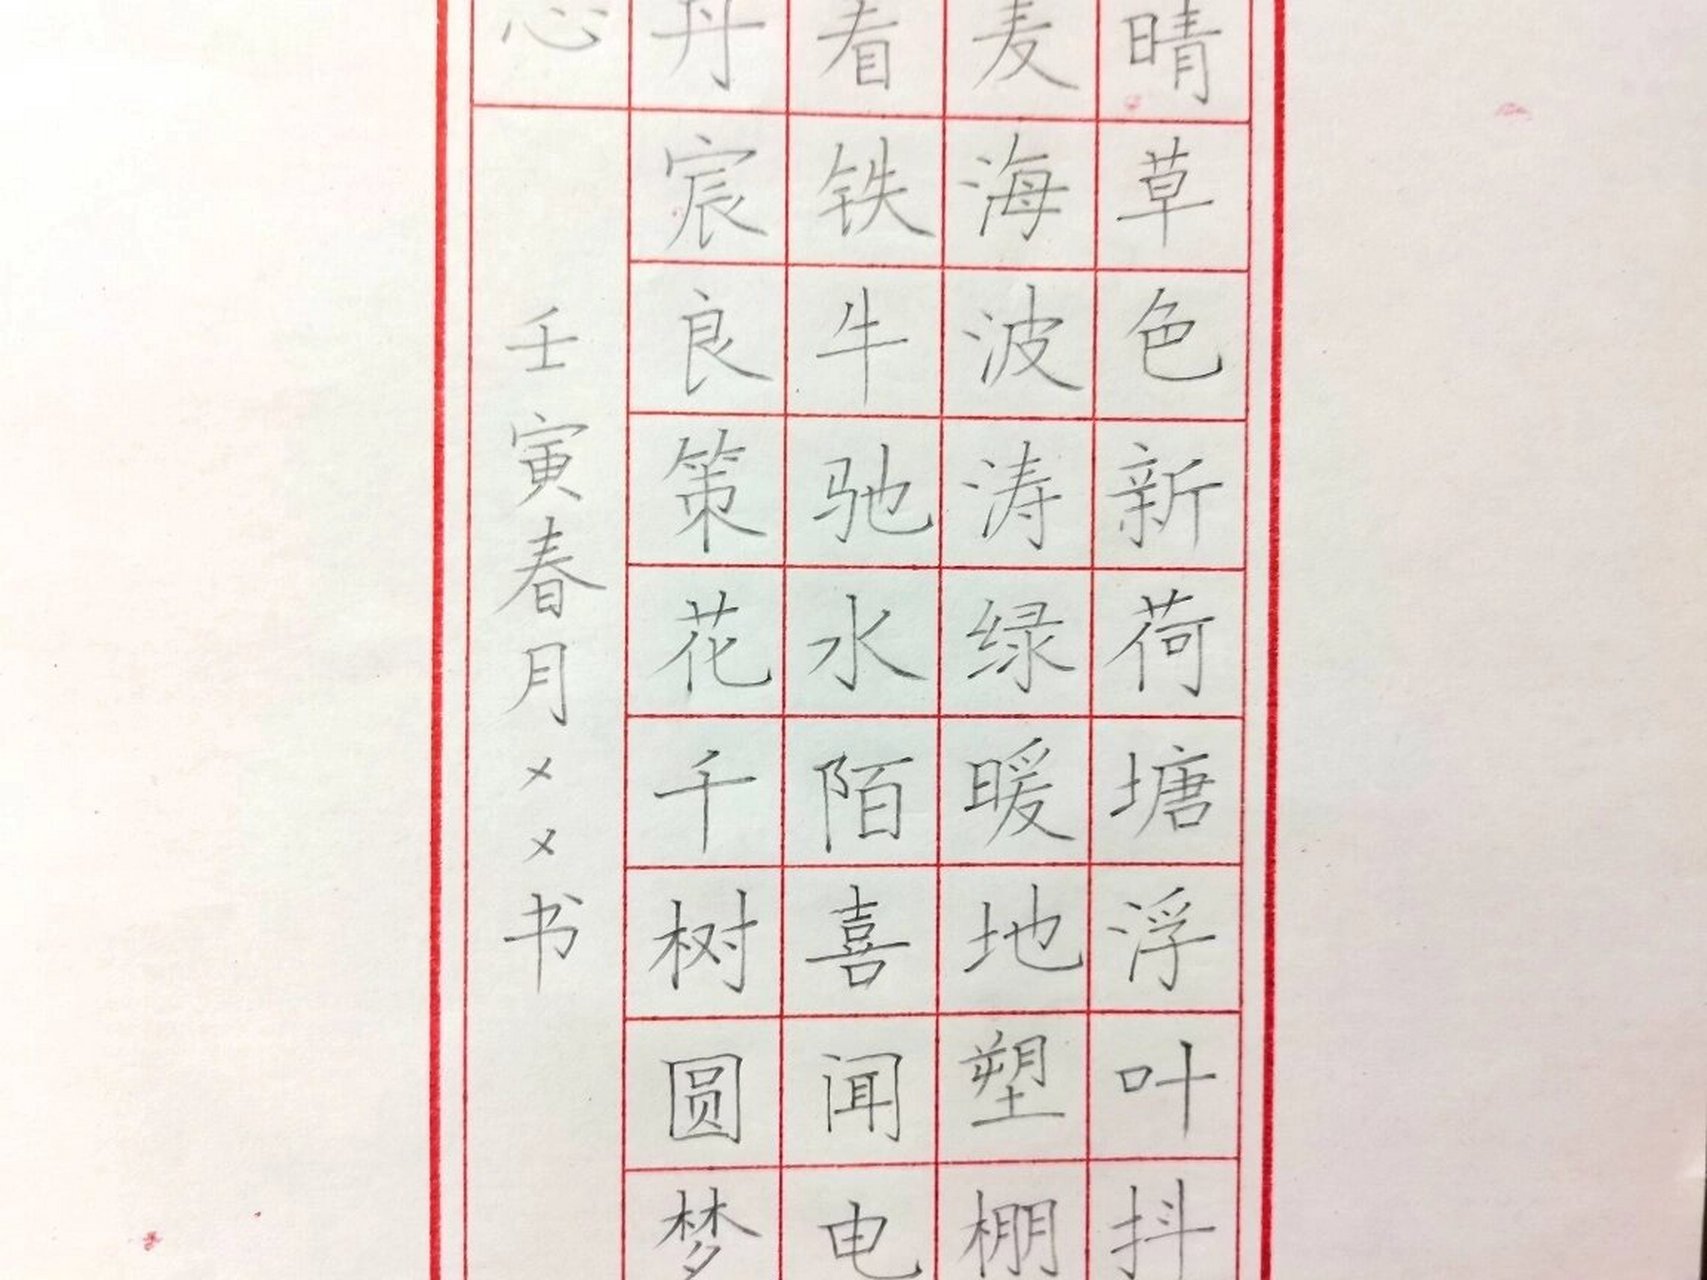 晴草色新荷塘浮叶抖
麦海波涛绿暖地塑棚
看铁牛驰水陌喜闻电
丹宸良策花千树圆梦
心
壬寅春月××书